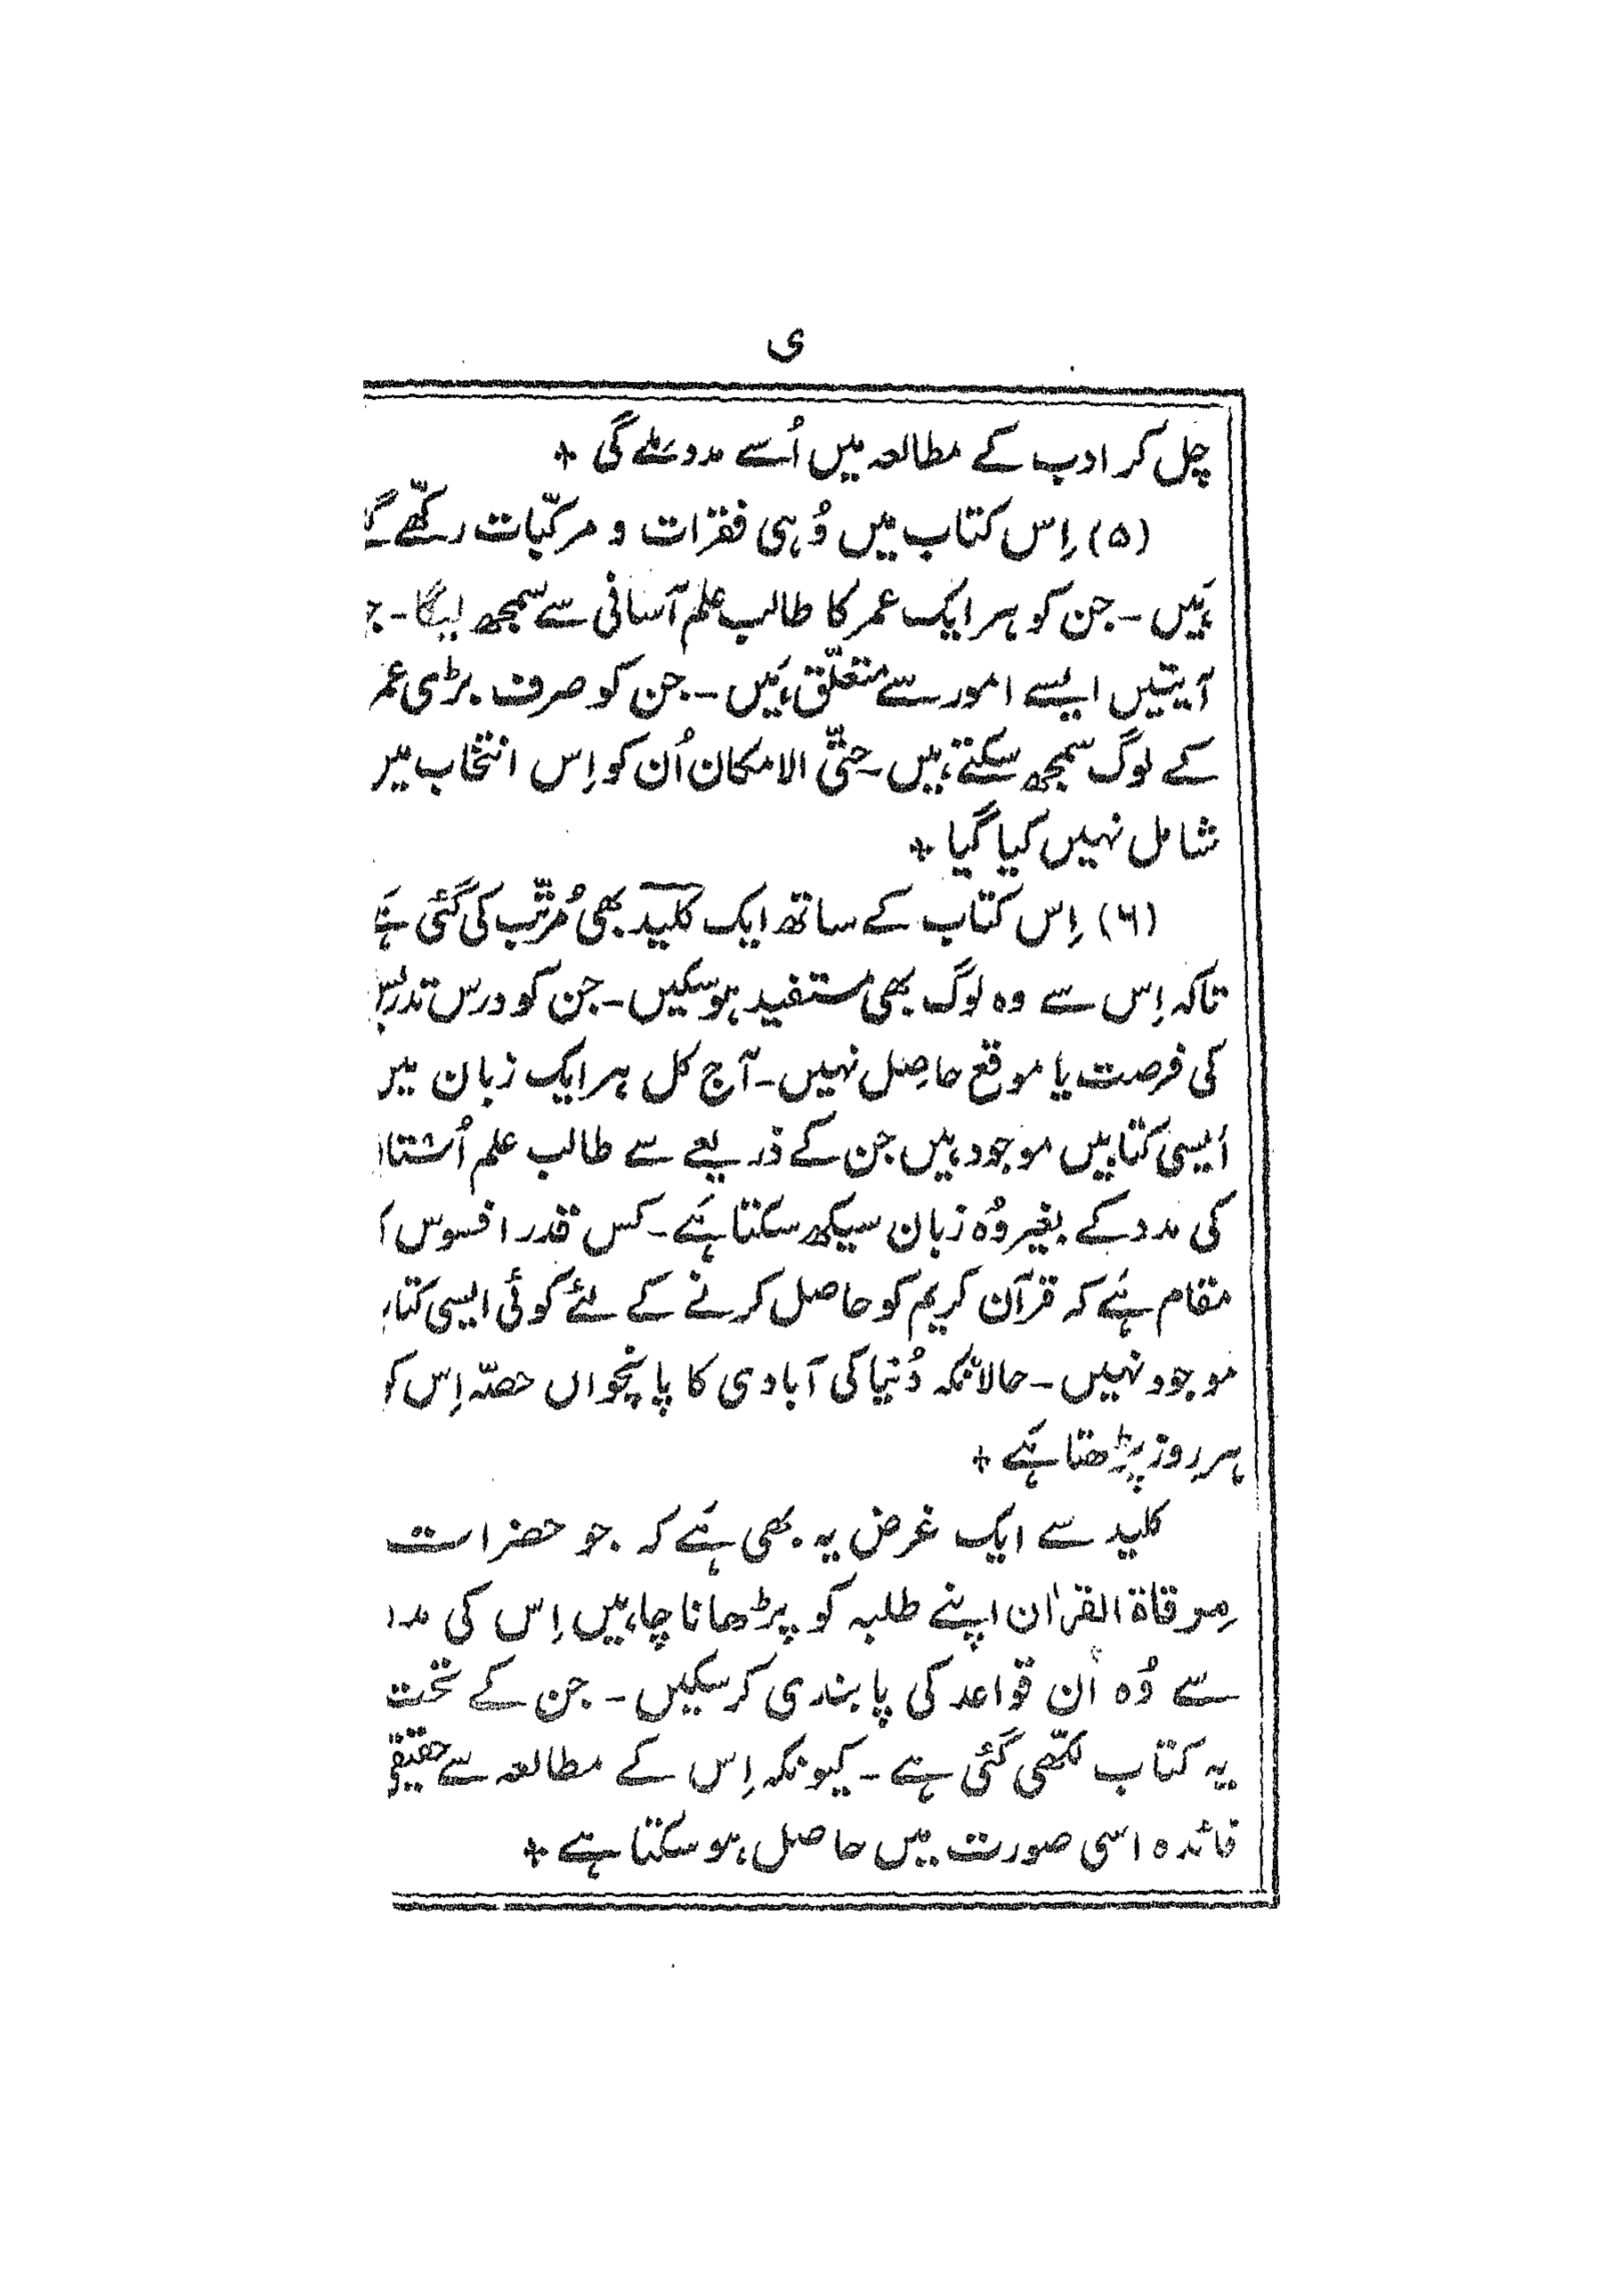 ی
چل کر ادب کے مطالعہ میں اُسے مدد ملے گی +
(۵) اِس کتاب میں وُہی فقرات و مرکّبات رکھّے
ہَیں - جن کو ہر ایک عمر کا طالب علم آسانی سے سمجھ لیگا -
آیتیں ایسے امور سے متعلّق ہَیں - جن کو صرف بڑی عمر
کے لوگ سمجھ سکتے ہیں - حتّی الامکان اُن کو اِس انتخاب میں
شامل نہیں کیا گیا +
(۶) اِس کتاب کے ساتھ ایک کلید بھی مُرتّب کی گئی ہَے
تاکہ اِس سے وہ لوگ بھی مستفید ہوسکیں - جن کو درس تدریس
کی فرصت یا موقع حاصِل نہیں - آج کل ہر ایک زبان میں
اَیسی کتابیں موجود ہیں جن کے ذریعے سے طالب علم اُستا
کی مدد کے بغیر وُہ زبان سیکھ سکتا ہَے - کس قدر افسوس
مقام ہَے کہ قرآن کریم کو حاصل کرنے کے لئے کوئی ایسی کتاب
موجود نہیں - حالانکہ دُنیا کی آبادی کا پانچواں حصّہ اِس کو
ہر روز پڑھتا ہَے +
کلید سے ایک غرض یہ بھی ہَے کہ جو حضرات
مِرقاۃ القرٰان اپنے طلبہ کو پڑھانا چاہیں اِس کی مدد
سے وُہ اُن قواعد کی پابندی کرسکیں - جن کے تحت
یہ کتاب لکھّی گئی ہے - کیونکہ اِس کے مطالعہ سے حقیقی
فائدہ اسی صورت میں حاصل ہوسکتا ہے +